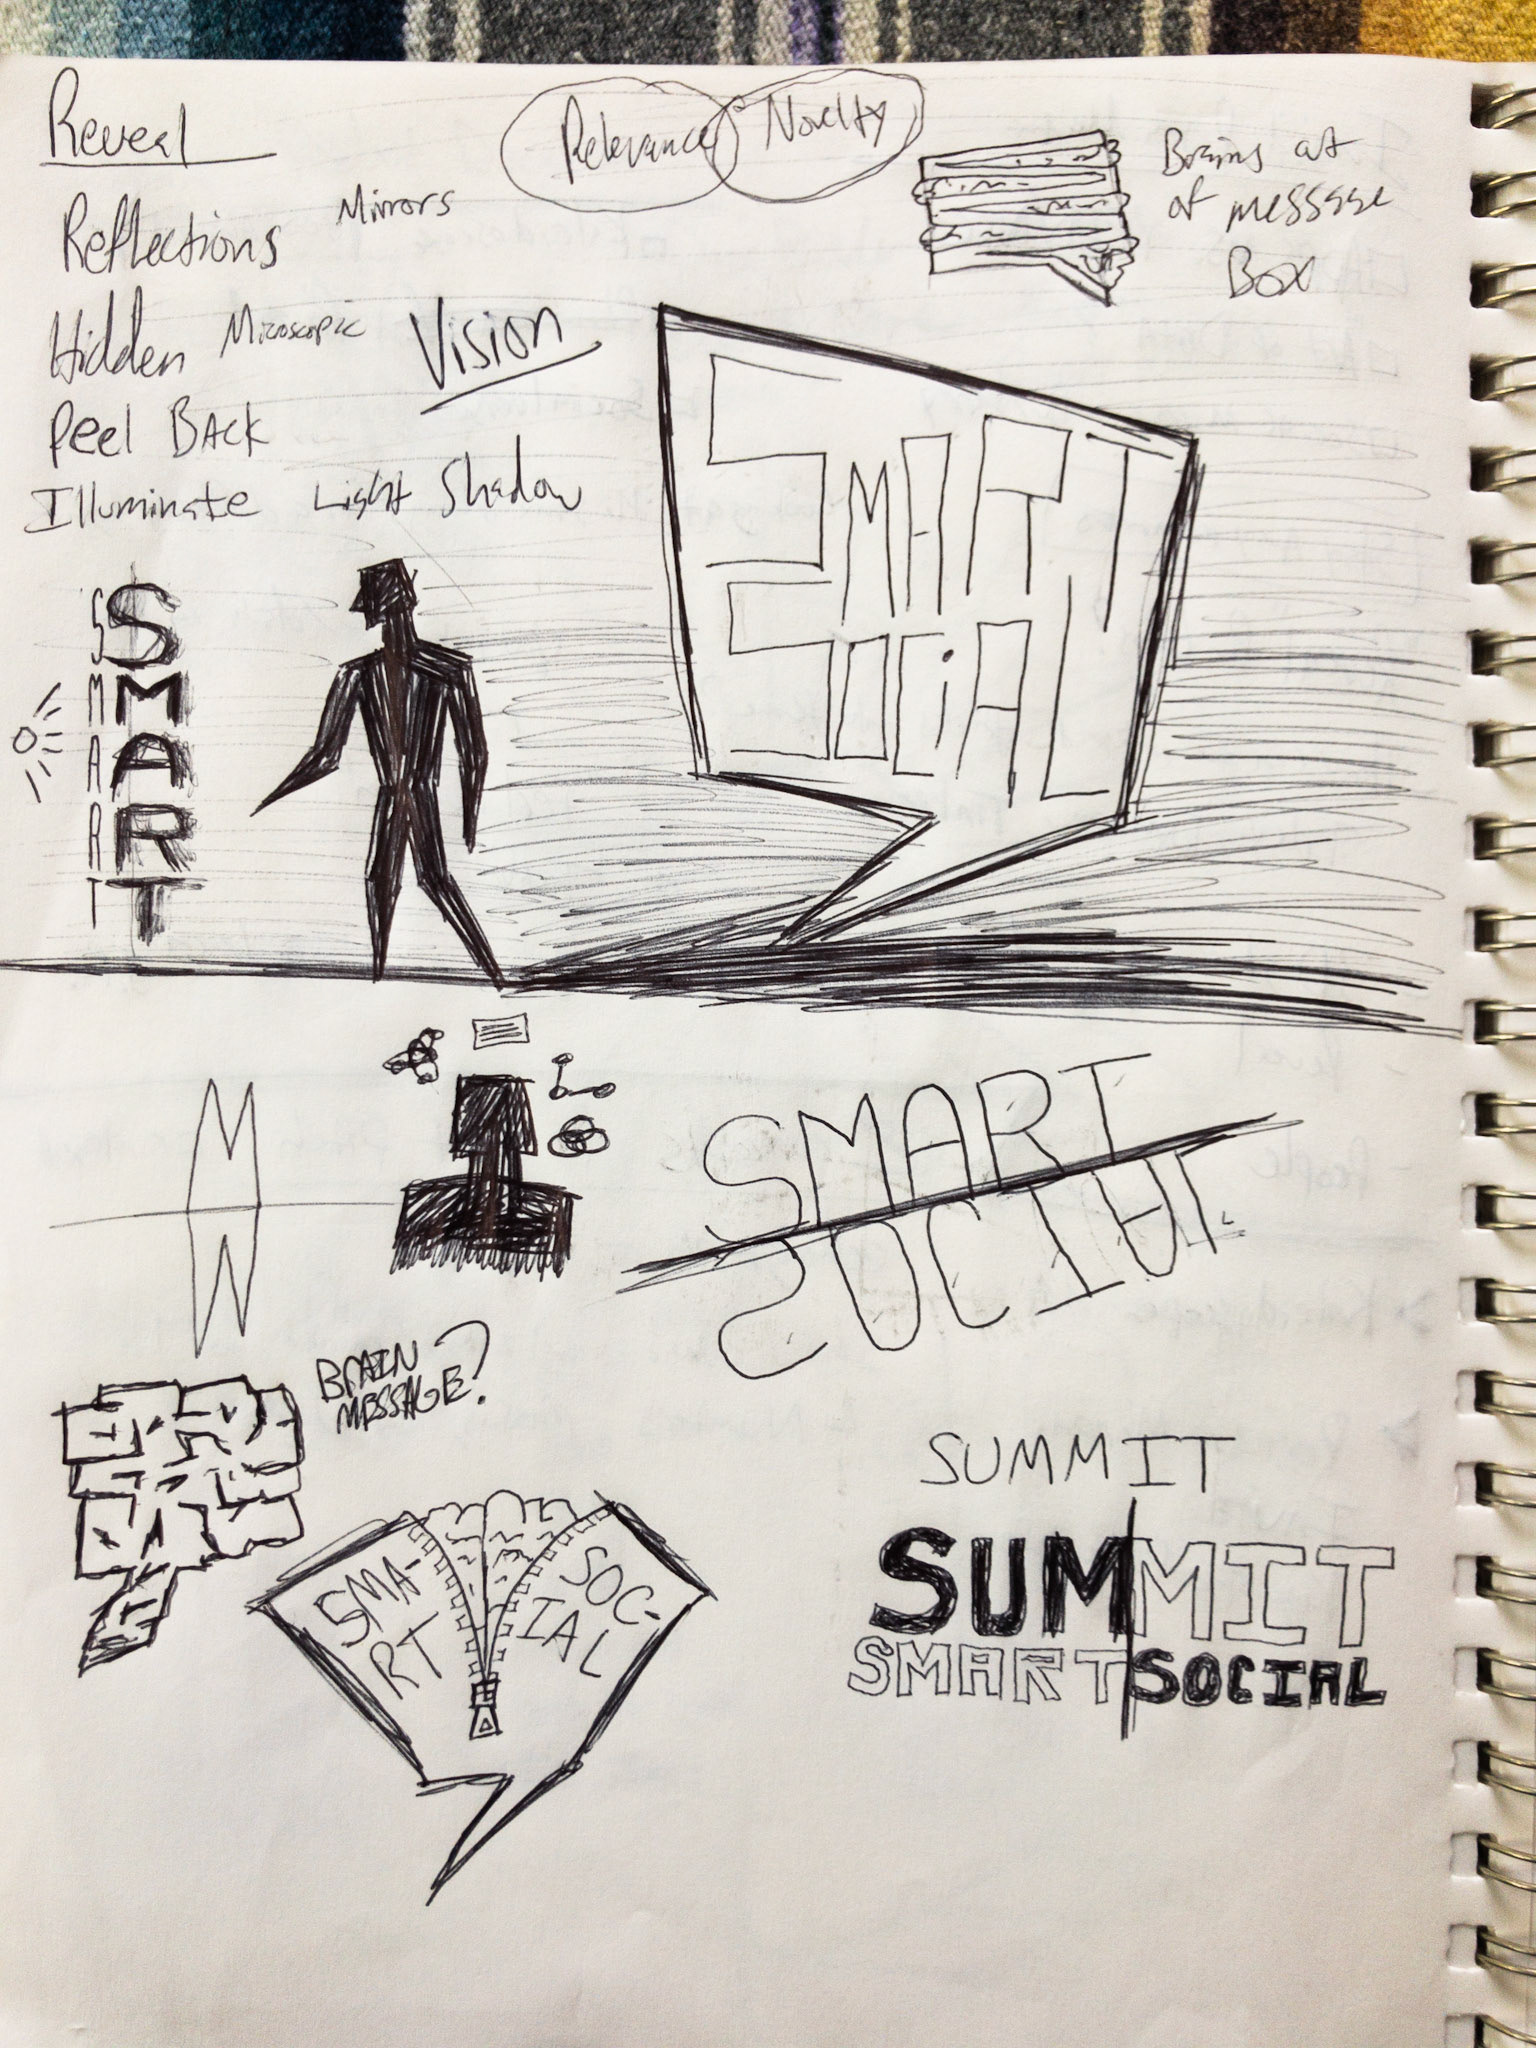 Reveal
Relevance Novelty
Brains out
of messsge
Box
Reflections Mirrors
Hidden Microscopic Vision
Peel BACK
Illuminate Light Shadow
SMART
SOCiAL
SMART
SMART
M
SMART
SOCIAL
BRAIN
MESSAGE?
SUMMIT
SUMMIT
SMART SOCIAL
SMA-
RT
SOC-
IAL